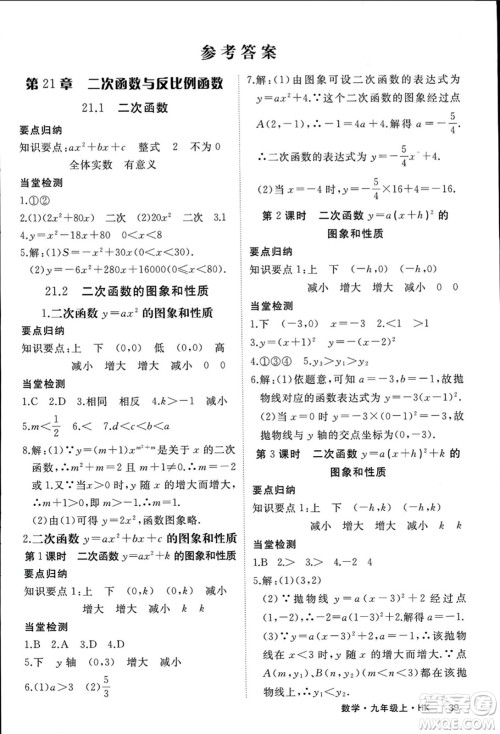 参考答案
第21章 二次函数与反比例函数
21.1 二次函数
要点归纳
知识要点：ax²+bx+c 整式 2 不为0
全体实数 有意义
当堂检测
1.①②
2.(1)2x²+8x-6 二次 (2)-6 8x
3.1 4.y=18x²+80x+80
5.解：(1)S=-x²+30x(0<x<30).
(2)y=6x²+160x+16000(0<x≤80).
21.2 二次函数的图象和性质
1.二次函数y=ax²的图象和性质
要点归纳
知识要点：上 下 (0,0) (0,0) 低 高
减小 增大 增大 减小
当堂检测
1.C 2.D 3.相同 相反 4.增大
5.m<1/2 6.< 7.d<c<a<b
8.解：(1)∵y=(m+1)x^{m²+m}是关于x的二次
函数，∴m²+m=2且m+1≠0，解得m=-2或
m=1.∵当x>0时，y随x的增大而增大，
∴m+1>0，即m>-1.∴m=1.
(2)由(1)得y=2x²，函数图象略.
2.二次函数y=ax²+bx+c的图象和性质
第1课时 二次函数y=ax²+k的图象和性质
要点归纳
知识要点：上 下 (0,k) (0,k) 减小
增大 增大 减小
当堂检测
1.A 2.D 3.D 4.D
5.下 y轴 (0,1) 增大 减小
6.(1)a>3 (2)a<3
7.解：(1)由图象可设二次函数的表达式为
y=ax²+4.∵二次函数的图象经过点
A(2,-1)，∴-1=4a+4.解得a=-5/4.
∴二次函数的表达式为y=-5/4x²+4.
(2)当x=4时，y=-5/4×16+4=-16.
第2课时 二次函数y=a(x+h)²的
图象和性质
要点归纳
知识要点：上 下 (-h,0) (-h,0)
减小 增大 增大 减小
当堂检测
1.下 (-3,0) x=-3 2.> 3.x<3
4.①③④ 5.y₁>y₂
6.解：(1)依题意，可得a=-1，b=3，故抛
物线对应的函数表达式为y=-(x-3)².
(2)当x=0时，y=-(0-3)²=-9，故抛
物线与y轴的交点坐标为(0,-9).
第3课时 二次函数y=a(x+h)²+k的
图象和性质
要点归纳
知识要点：上 下 (-h,k) (-h,k)
减小 增大 增大 减小 k k
当堂检测
1.B 2.> 3.> 4.y₁>y₂
5.解：(1)设y=a(x-3)²+2(a≠0)，
∵该抛物线经过点(1,0)，∴a(1-3)²+
2=0，解得a=-1/2.∴该抛物线对应的
函数表达式为y=-1/2(x-3)²+2.
(2)∵抛物线的对称轴为直线x=3，
a=-1/2<0，∴在对称轴右侧，该抛物线
对应的函数值y随x的增大而减小.
数学·九年级上·HK 39